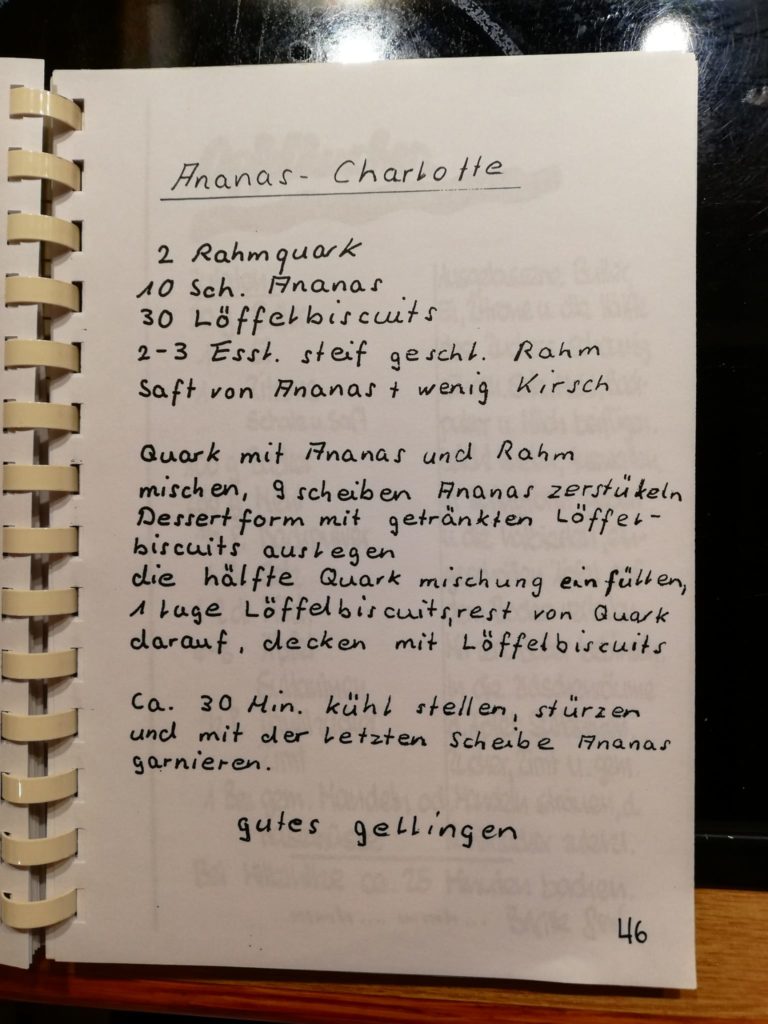 Ananas - Charlotte
2 Rahmquark
10 Sch. Ananas
30 Löffelbiscuits
2-3 Essl. steif geschl. Rahm
Saft von Ananas + wenig Kirsch
Quark mit Ananas und Rahm
mischen, 9 scheiben Ananas zerstükeln
Dessertform mit getränkten Löffel-
biscuits auslegen
die hälfte Quark mischung einfüllen,
1 lage Löffelbiscuits, rest von Quark
darauf, decken mit Löffelbiscuits
Ca. 30 Min. kühl stellen, stürzen
und mit der letzten Scheibe Ananas
garnieren.
gutes gellingen
46